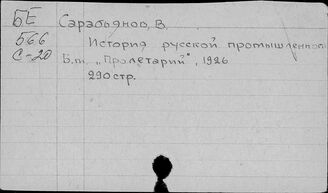 БЕ
566
С-20
Сарабьянов, В.
История русской промышленности
Б.м. "Пролетарий", 1926
290 стр.